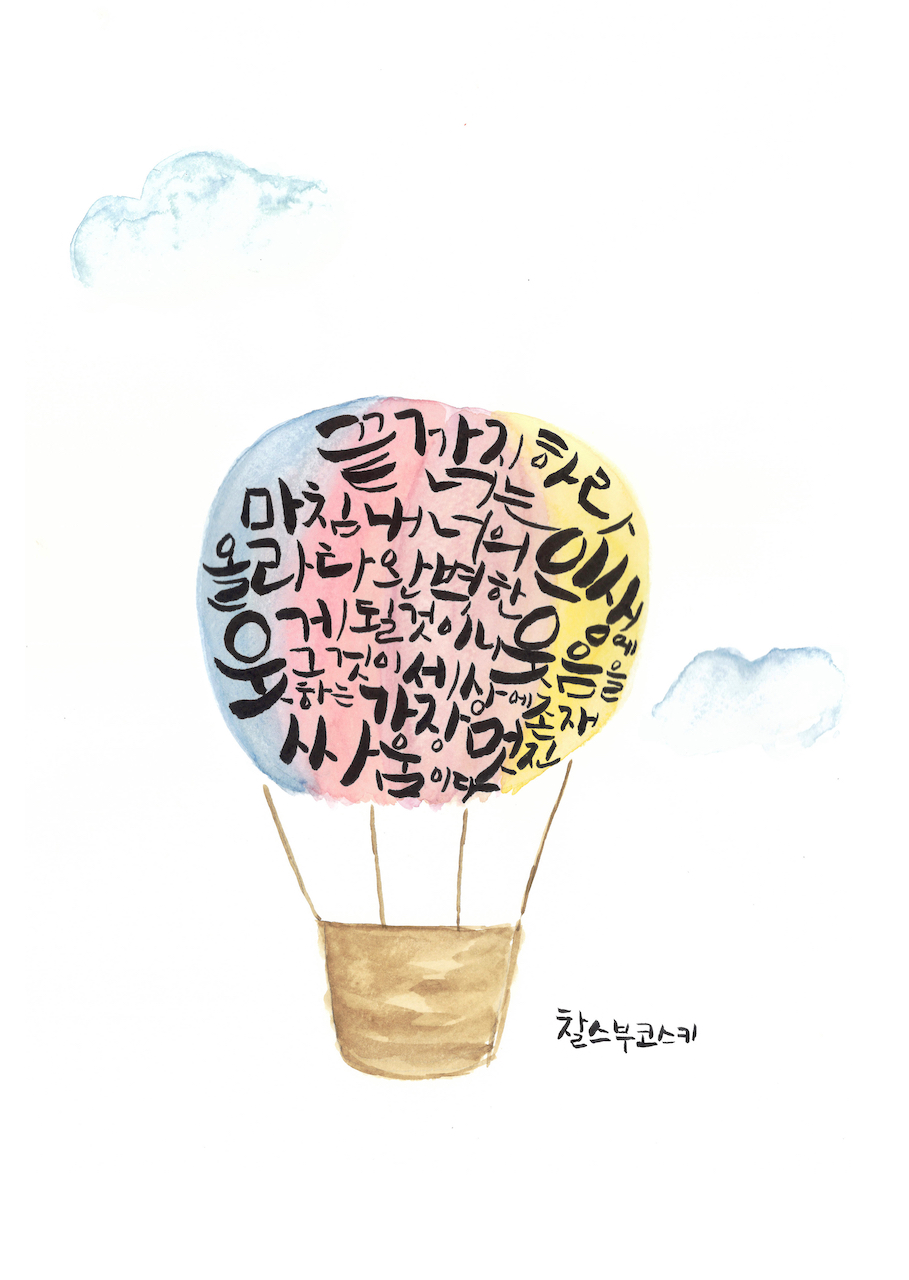 끝까지 하라
너는
마침내 너의 인생에
올라타 완벽한 웃음을
웃게 될 것이니
그것이 세상에 존재
하는 가장 멋진
싸움이다
찰스부코스키